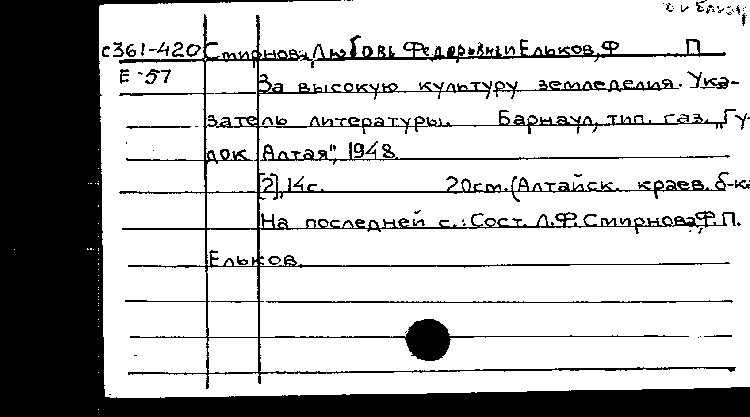 с361-420 Смирнова, Любовь Федоровна и Ельков, Ф П
Е-57
За высокую культуру земледелия. Ука-
затель литературы. Барнаул, тип. газ. „Гу-
док Алтая", 1948.
[2], 14с. 20см. (Алтайск. краев. б-ка
На последней с.: Сост. Л.Ф. Смирнова, Ф.П.
Ельков.